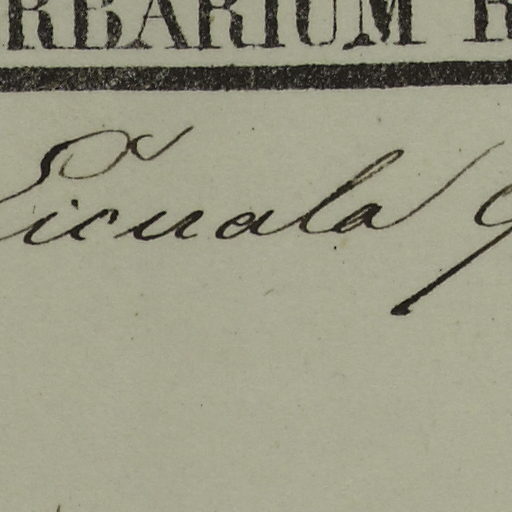 RBARIUM
Licuala